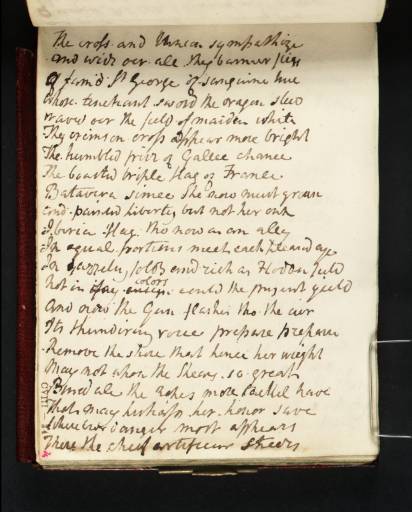 The cross and Union sympathize
and wide oer all thy banner flies
of famd St George of sanguine hue
Whose trenchant sword the dragon slew
waves oer the field of maiden white
Thy crimson cross appear more bright
The humbled prize of Gallic chance
The boasted triple flag of France
Batavia since She now must groan
and Liberty but not her own
Iberia flag tho now as an ally
In equal portions meet each
In and rich as field
Not in colors could the pregnant yield
And now the Gun flashes thro the air
Its thundering voice prepare prepare
Remove the Shore that hence her weight
May not upon the Shears so great
all the ropes more careful have
That may perhaps her honor save
Where danger most appears
There the chief artificer steers